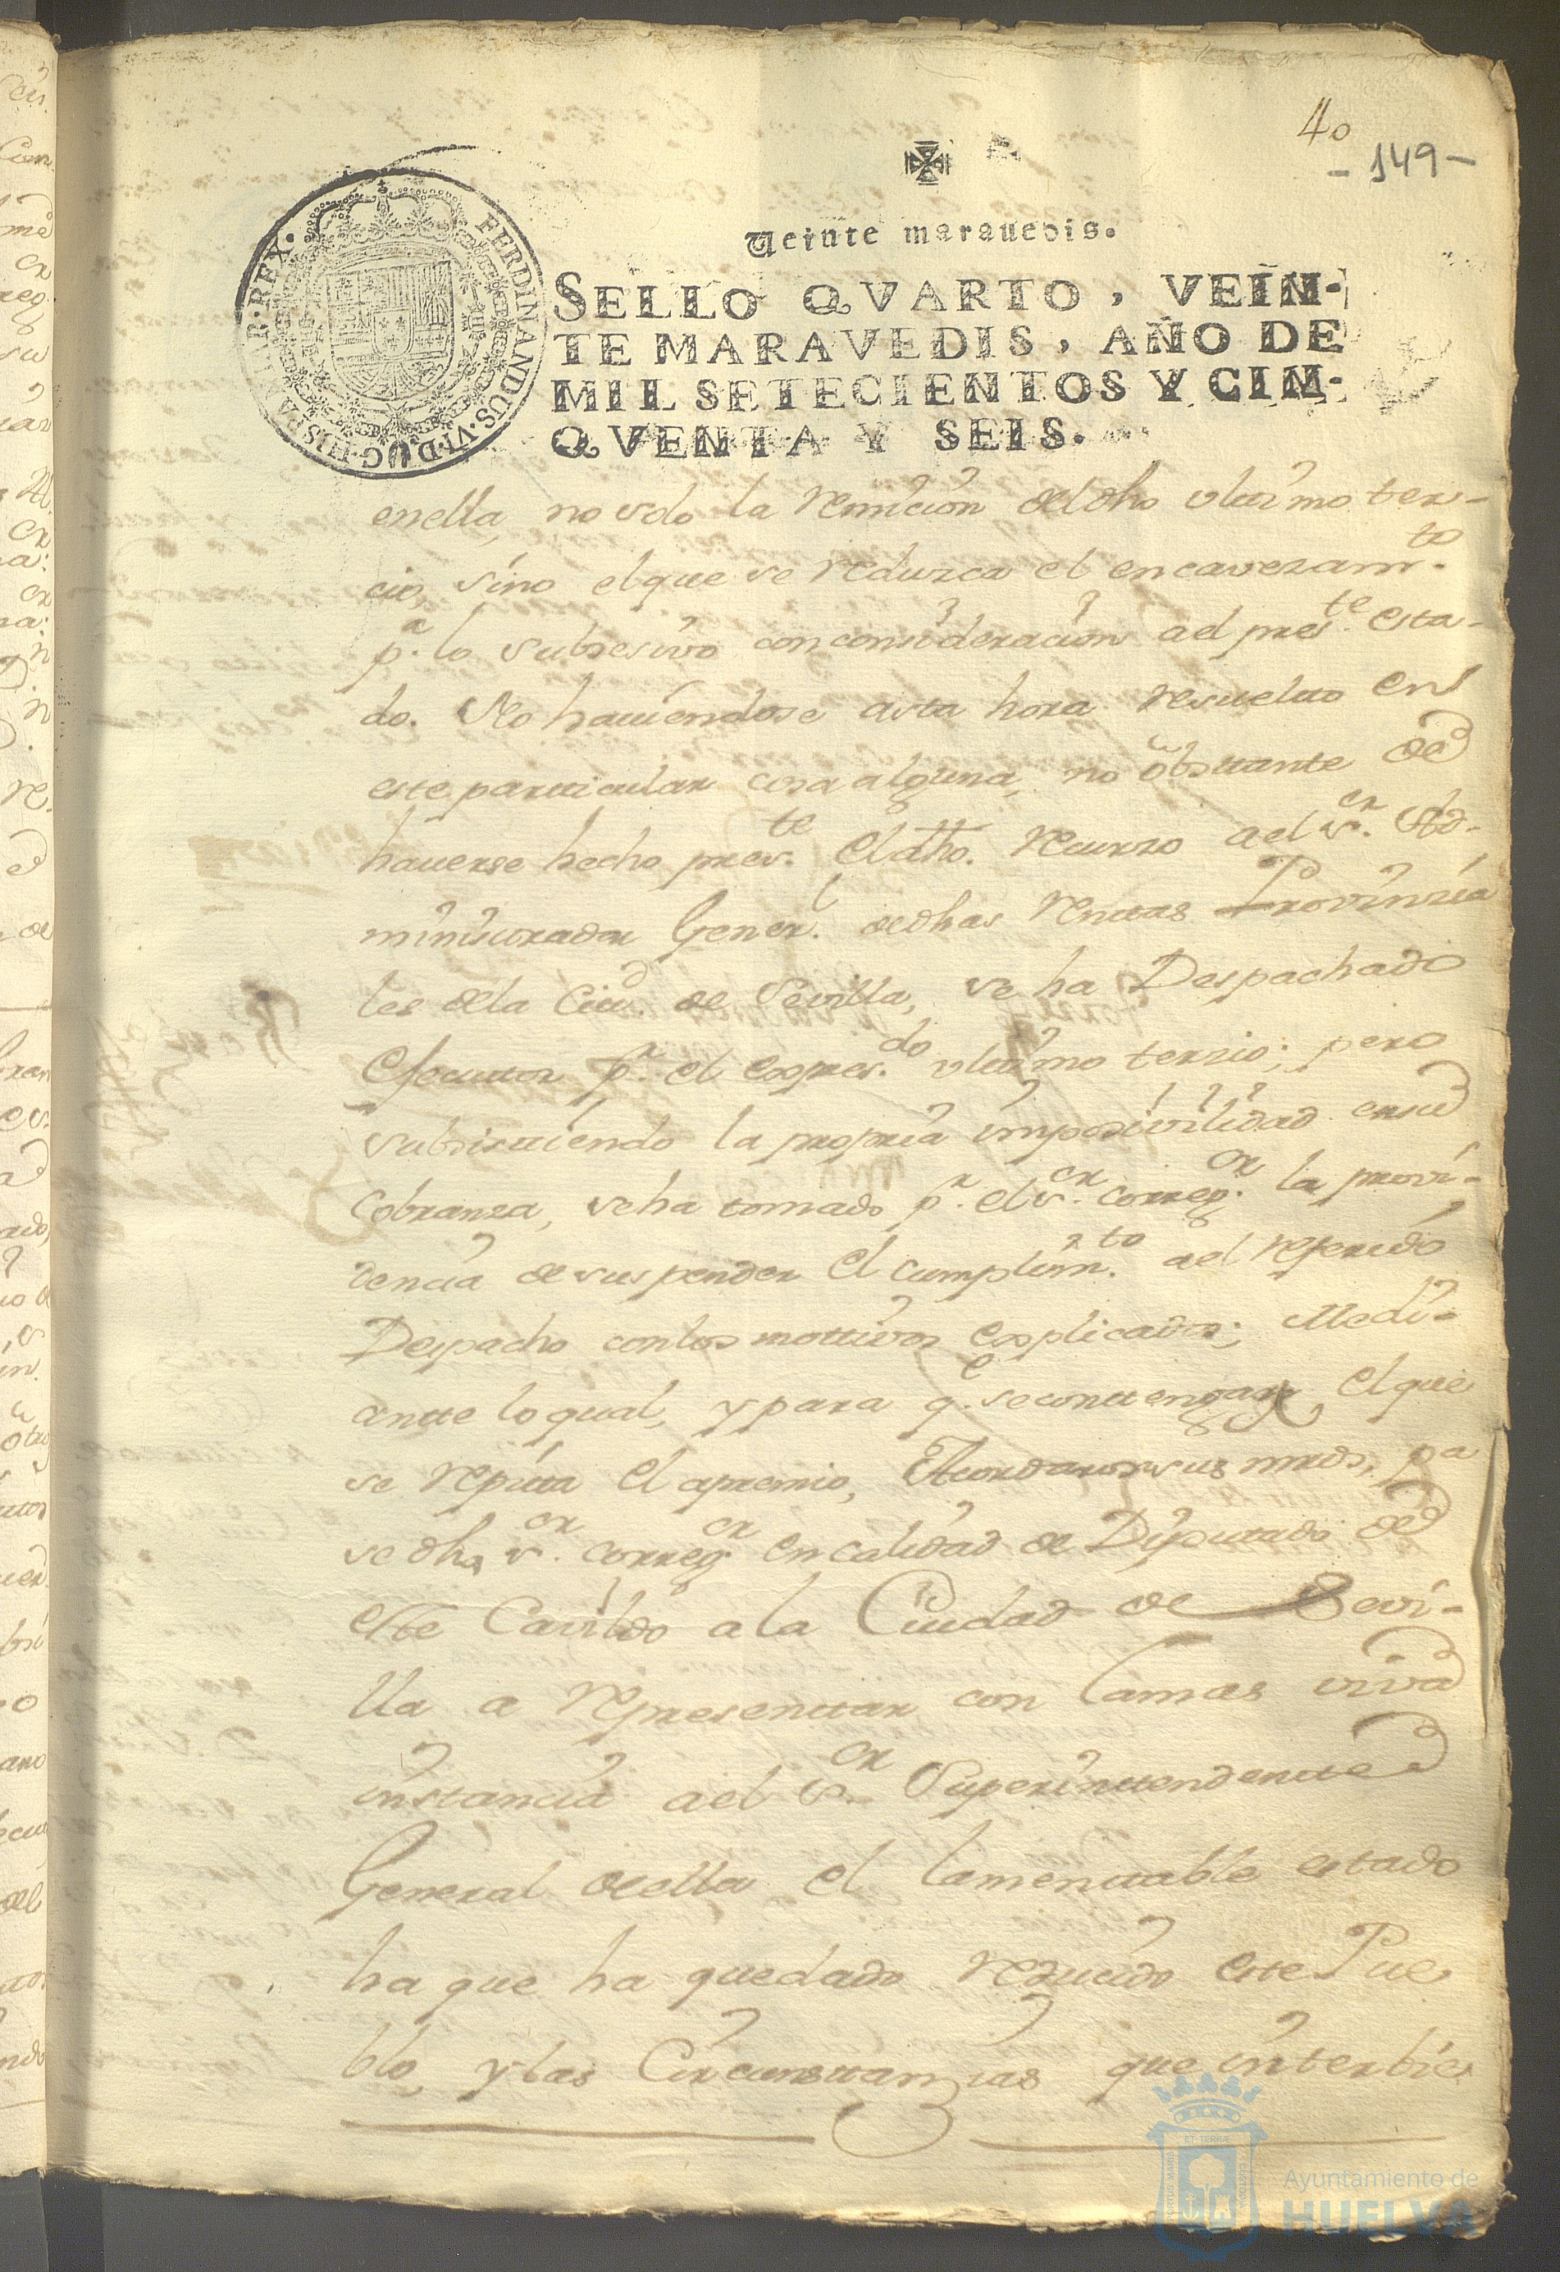 40
- 149 -
Veinte maravedis.
SELLO QVARTO, VEIN-
TE MARAVEDIS, AÑO DE
MIL SETECIENTOS Y CIN-
QVENTA Y SEIS.
FERDINANDUS·VI·D·G·HISPANIAR·REX·
en ella, no solo la remicion del dho ultimo ter-
cio, sino el que se reduzca el encavezam.to
p.a lo subsesivo con consideracion ael pres.te esta-
do. No haviendose asta hora resuelto en
este particular cosa alguna, no obsttante de
haverse hecho pres.te el dho. recurzo ael s.or Ad-
ministrador Gener.l de dhas renttas Provinzia
les de la Ciu.d de Sevilla, se ha Despachado
Executor p.r el expres.do ultimo terzio; pero
subsistiendo la propria imposivilidad en su
Cobranza, se ha tomado p.r el s.or correg.or la provi-
dencia de suspender el cumplim.to ael referido
Despacho con los mottivos explicados; Medi-
antte lo qual, y para q.e se conttenga el que
se repita el apremio, Acordaron sus mrds, pa
se dho s.or correg.or en calidad de Diputado de
este Cavildo a la Ciudad de Sevi-
lla a representtar con la mas viva
instancia ael s.or Superinttendentte
General de ella el lamenttable estado
ha que ha quedado reducido este Pue
blo, y las Circunsttanzias que interbie
Ayuntamiento de
HUELVA